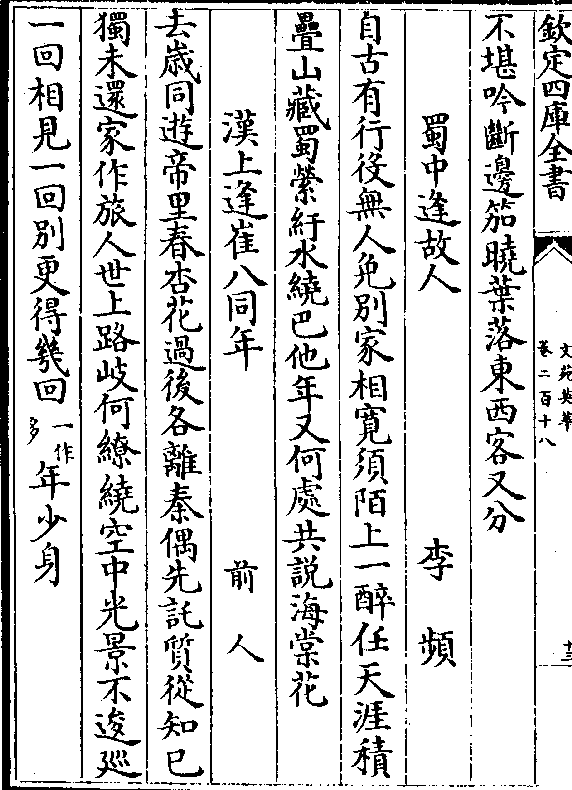 欽定四庫全書
文苑英華
卷二百十八
十三
不堪吟斷邊笳曉葉落東西客又分
蜀中逢故人 李頻
自古有行役無人免別家相寬須陌上一醉任天涯積
疊山藏蜀縈紆水繞巴他年又何處共說海棠花
漢上逢崔八同年 前人
去歲同遊帝里春杏花過後各離秦偶先託質從知己
獨未還家作旅人世上路岐何繚繞空中光景不逡巡
一回相見一回別更得幾回一作多年少身